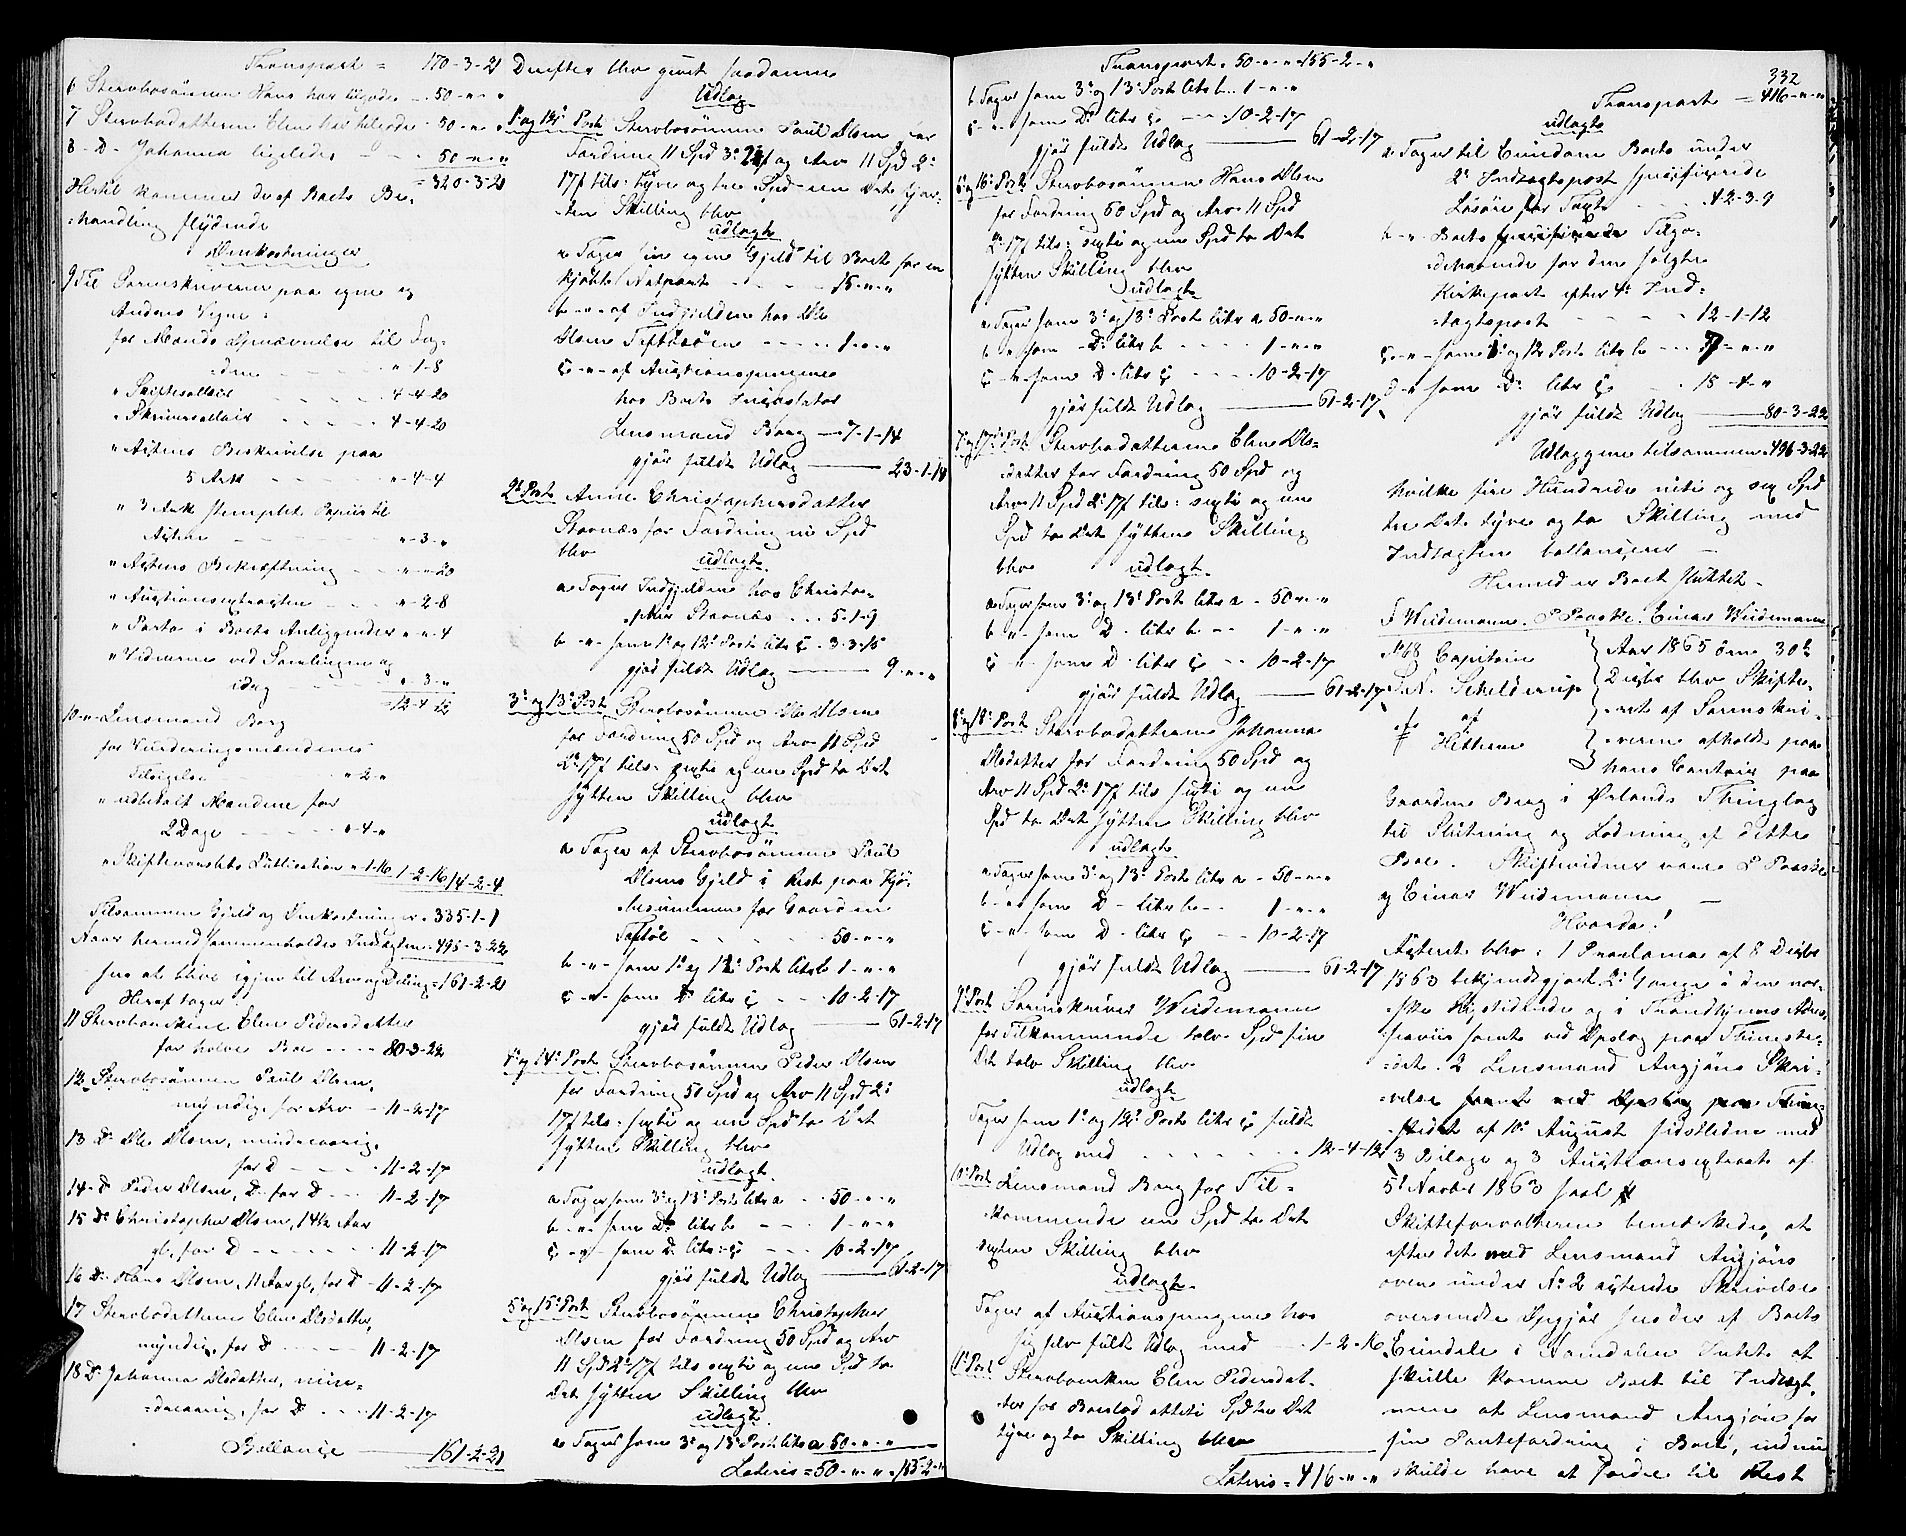 Transport = 170-3-21
6 Sterbosönnen Hans har tilgode - 50-"-"
7 Sterbodatteren Elen har tilgode - 50-"-"
8 - D - Johanna ligeledes - - 50-"-"
= 320-3-21
Hertil kommer de af Boets Be-
=handling flydende
Omkostninger
9 Til Sorenskriveren paa egne og
Andres Vegne:
for Mænds Opnævnelse til
" 1-8
" Skiftesallair - - - 4-4-20
" Skriversallair - - - 4-4-20
" Actens Beskrivelse paa
5 Ark - - - "-4-4
" 3 Ark stemplet Papiir til
Acten - - - "-3-"
" Actens Bekræftning - - "-"-20
" Auctionsextracten - - "-2-8
" Porto i Boets Anliggender "-"-4
" Vidnerne ved Samlingen og
idag - - "-3-"
= 12-4-12
10 -"- Lensmand Borg
for Vurderingsmændenes
Tilsigelse - - - "-2-"
" udbetalt Mændene for
2 Dage - - - "-4-"
" Skiftevarslets Publication "-1-16 1-2-16 14-2-4
Tilsammen Gjeld og Omkostninger = 335-1-1
Naar hermed sammenholdes Indtægten = 495-3-22
sees at blive igjen til Arv og Deling = 161-2-21
Heraf tager
11 Sterboenken Elen Pedersdatter
for halve Boe - - - 80-3-22
12 Sterbosönnen Paul Olsen,
myndig, for Arv - 11-2-17
13 D. Ole Olsen, mindreaarig,
for D - - - 11-2-17
14 - D Peder Olsen, D. for D - - 11-2-17
15 D. Christopher Olsen, 14½ Aar
gl., for D - - - 11-2-17
16 D. Hans Olsen, 11 Aar gl., for D - 11-2-17
17 Sterbodatteren Elen Olsdatter,
myndig, for D - - - 11-2-17
18 D. Johanna Olsdatter, min-
=dreaarig, for D - - - 11-2-17
Ballance ——— 161-2-21
Derefter blev gjort saadanne
Udlæg
1 og 12. Post Sterbosönnen Paul Olsen for
Fordring 11 Spd 3. 21 f og Arv 11 Spd 2.
17 f tils: tyve og tre Spd een Ort fjor-
ten Skilling blev
udlagt
a Tager sin egen Gjeld til Boet for en
kjöbt Notpart - - - 15-"-"
b -"- af Indgjelden hos Ole
Olsen - - - 1-"-"
c -"- af Auctionspengene
hos Boets Incassator
Lensmand Borg — 7-1-14
gjör fuldt Udlæg ——— 23-1-14
2. Post Anne Christophersdatter
for Fordring ni Spd
blev udlagt
a Tager Indgjelden hos Christo-
pher - - 5-1-9
b -"- som 1 og 12. Post litr c - 3-3-15
gjör fuldt Udlæg ——— 9-"-"
3. og 13. Post Sterbosönnen Ole Olsen
for Fordring 50 Spd og Arv 11 Spd
2. 17 f tils: sexti og een Spd to Ort
sytten Skilling blev
udlagt
a Tager af Sterbosönnen Paul
Olsens Gjeld i Rest paa Kjö-
besummen for Gaarden
- - - 50-"-"
b -"- som 1. og 12. Post litr b 1-"-"
c -"- som D. litr c - - 10-2-17
gjör fuldt Udlæg ——— 61-2-17
4. og 14. Post Sterbosönnen Peder Olsen
for Fordring 50 Spd og Arv 11 Spd 2.
17 f tils: sexti og een Spd to Ort
sytten Skilling blev
udlagt
a Tager som 3. og 13. Post litr a - - 50-"-"
b -"- som D. litr b - - - 1-"-"
c -"- som D. litr: c - - 10-2-17
gjör fuldt Udlæg ——— 61-2-17
5. og 15. Post Sterbosönnen Christopher
Olsen for Fordring 50 Spd og Arv
11 Spd 2. 17 f tils sexti og een Spd to
Ort sytten Skilling blev
udlagt
a Tager som 3. og 13. Post litr a 50-"-"
Lateris = 50-"-" = 155-2-"
332
Transport = 50-"-" = 155-2-"
b Tager som 3. og 13. Post litr b - 1-"-"
c -"- som D. litr c - - 10-2-17
gjör fuldt Udlæg ——— 61-2-17
6. og 16. Post Sterbosönnen Hans Olsen
for Fordring 50 Spd og Arv 11 Spd
2. 17 f tils: sexti og een Spd to Ort
sytten Skilling blev
udlagt
a Tager som 3. og 13. Post litr a 50-"-"
b -"- som D. litr b - - - 1-"-"
c -"- som D. litr c - - - 10-2-17
gjör fuldt Udlæg ——— 61-2-17
7. og 17. Post Sterbodatteren Elen Ols-
datter for Fordring 50 Spd og
Arv 11 Spd 2. 17 f tils: sexti og een
Spd to Ort sytten Skilling
blev udlagt
a Tager som 3. og 13. Post litr a - 50-"-"
b -"- som D. litr b - - 1-"-"
c -"- som D. litr c - - 10-2-17
gjör fuldt Udlæg ——— 61-2-17
8. og 18. Post Sterbodatteren Johanna
Olsdatter for Fordring 50 Spd og
Arv 11 Spd 2. 17 f tils sexti og een
Spd to Ort sytten Skilling blev
udlagt
a Tager som 3. og 13. Post litr a - 50-"-"
b -"- som D. litr b - - 1-"-"
c -"- som D. litr c - - 10-2-17
gjör fuldt Udlæg ——— 61-2-17
9. Post Sorenskriver Weidemann
for Tilkommende tolv Spd fire
Ort tolv Skilling blev
udlagt
Tager som 1. og 12. Post litr c fuldt
Udlæg med - - - 12-4-12
10. Post Lensmand Borg for Til-
kommende een Spd to Ort
sexten Skilling blev
udlagt
Tager af Auctionspengene hos
sig selv fuldt Udlæg med - - 1-2-16
11. Post Sterboenken Elen Pedersdat-
ter for Boeslod otteti Spd tre Ort
tyve og to Skilling blev
Lateris = 416-"-"
Transport = 416-"-"
udlagt
a Tager til Eiendom Boets under
2. Indtægtspost specificerede
Lösöre for Taxt - - - 42-3-9
b -"- Boets Tilgo-
dehavende for den solgte
Kirkepart efter 4. Ind-
tægtspost - - - 12-1-12
c -"- som 1. og 12 Post litr b - - 7-"-"
d -"- som D. litr c - - - 18-4-"
gjör fuldt Udlæg ——— 80-3-22
Udlæggene tilsammen = 496-3-22
hvilke fire Hundrede niti og sex Spd
tre Ort tyve og to Skilling med
Indtægten ballancerer —
Hermed er Boet sluttet —
F Weidemann. P Paaske. Einar Weidemann
No 68 Capitain
Schelderup
af
Hitteren
Aar 1865 den 30te
Decbr blev Skifte-
=ret af Sorenskri-
=veren afholdt paa
hans Contoir paa
Gaarden Borg i Ørlands Thinglag
til Slutning og Lodning af dette
Boe. Skiftevidner vare P Paaske
og Einar Weidemann —
Hvorda!
Acteret blev: 1 Proclama af 8 Decbr
1863 bekjendtgjort 2. Gange i den nor-
ske Rigstidende og i Trondhjems Adres-
seavis samt ved Opslag paa Thingste-
det. 2 Lensmand Angjöns Skri-
velse samt ved Opslag paa Thing-
stedet af 10. August sidstleden med
3 Bilage og 3 Auctionsextract af
5. Novbr 1863
Skifteforvalteren bemærkede, at
efter det med Lensmand Angjöns
oven under No 2 acterede Skrivelse
oversendte Opgjör for af Boets
Eiendele i Intet at
skulle komme Boet til Indtægt,
men at Lensmand Angjön for
sin Pantefordring i Boet, endnu
skulde have at fordre til Rest